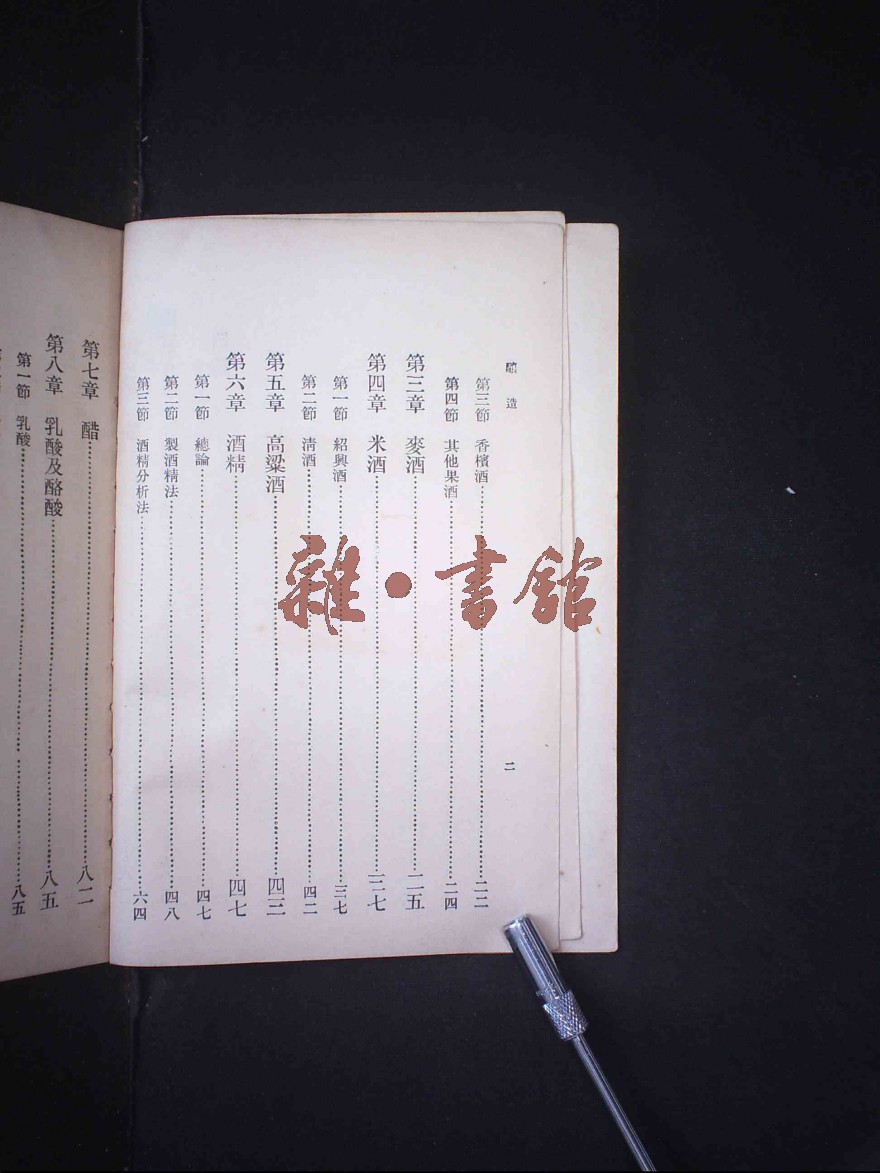 釀造
二
第三節 香檳酒 二二
第四節 其他果酒 二四
第三章 麥酒 二五
第四章 米酒 三七
第一節 紹興酒 三七
第二節 清酒 四二
第五章 高粱酒 四三
第六章 酒精 四七
第一節 總論 四七
第二節 製酒精法 四八
第三節 酒精分析法 六四
第七章 醋 八二
第八章 乳酸及酪酸 八五
第一節 乳酸 八五
雜·書館